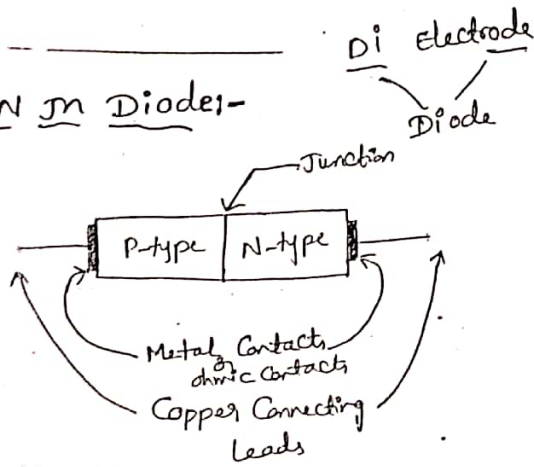 Di Electrode
Diode
N Jn Diode:-
Junction
P-type N-type
Metal Contacts
or
ohmic Contacts
Copper Connecting
Leads